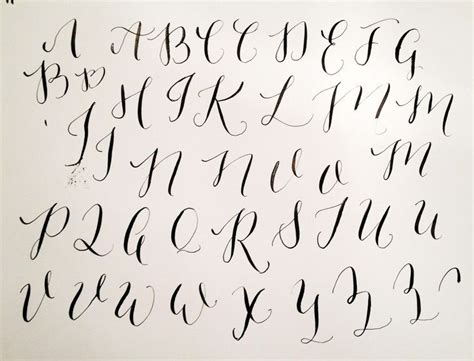 A A B C C D E F G
B B H I K L M M
J J N N O O M
P Q Q Q R S T U U
V V W W X Y Z Z